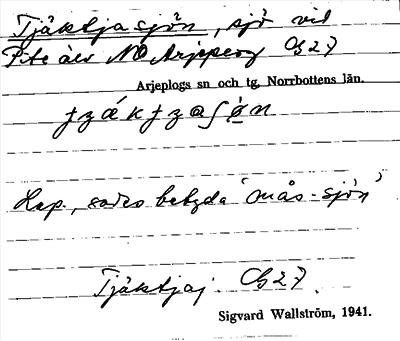 Tjäktjasjön, sjö vid
Pite älv NO Arjeplog G27
Arjeplogs sn och tg, Norrbottens län.
Lap., sades betyda 'mås-sjön'
Tjäktjaj. G27.
Sigvard Wallström, 1941.